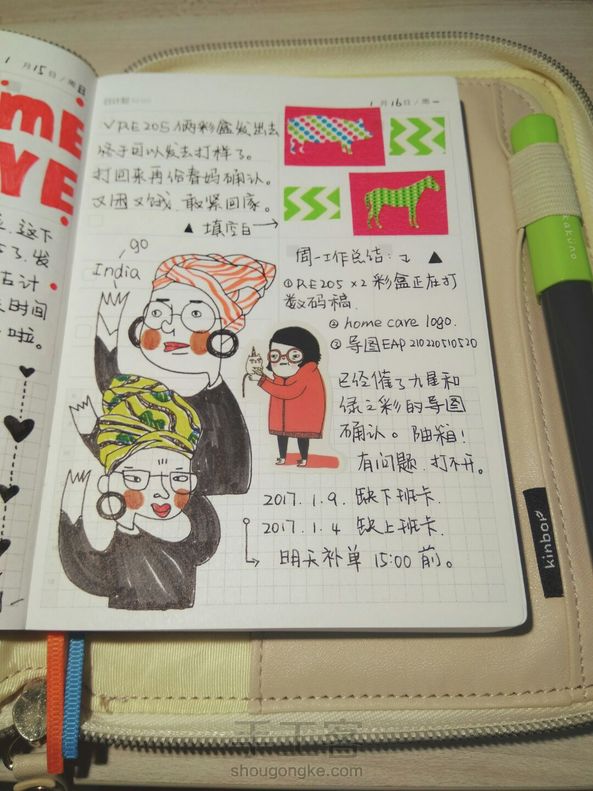 1月15日/周日
ME
YE
这下
了.发
估计
时间
啦。
1月16日/周一
✓RE205俩彩盒发出去
终于可以发去打样了。
打回来再给春妈确认。
又困又饿.敢紧回家。
▲ 填空白→
go
India
周一工作总结:↓ ▲
①RE205 x2 彩盒正在打
数码稿.
② home care logo.
③ 导图EAP210220510520
已经催了九星和
绿之彩的导图
确认。油箱!
有问题.打不开。
2017.1.9. 缺下班卡.
2017.1.4 缺上班卡.
明天补单 15:00 前。
kakuno
kinbor
手工客
shougongke.com